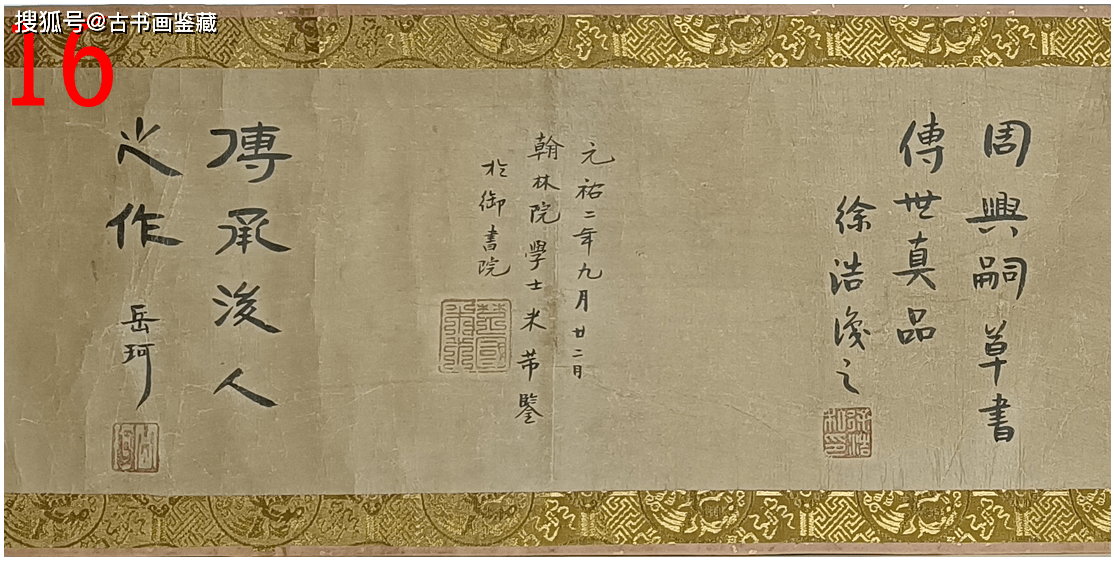 搜狐号@古书画鉴藏
16
周興嗣草書
傳世真品
徐浩識之
元祐二年九月廿二日
翰林院學士米芾鑒
於御書院
傳承後人
之作
岳珂